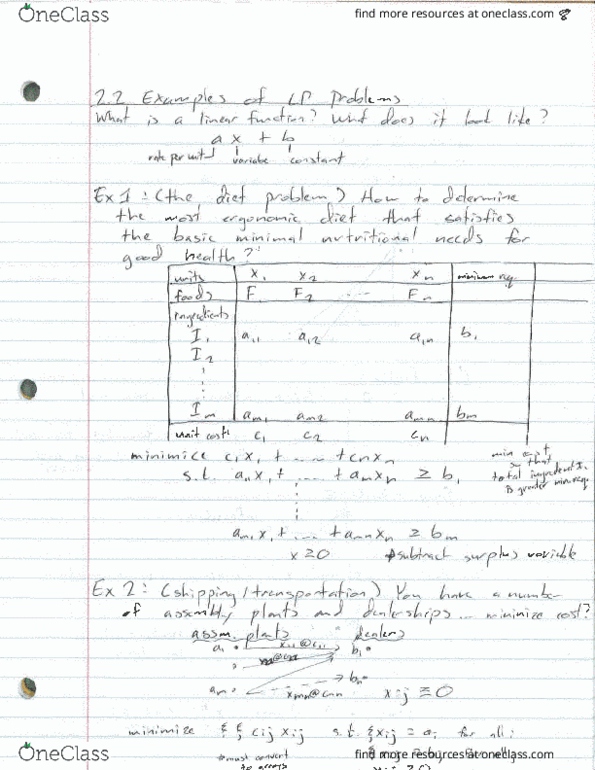 OneClass
find more resources at oneclass.com
2.2 Examples of LP Problems
What is a linear function? What does it look like?
a x + b
rate per unit variable constant
Ex 1: (the diet problem) How to determine
the most ergonomic diet that satisfies
the basic minimal nutritional needs for
good health?
units x₁ x₂ xₙ minimum req.
foods F F₂ ... Fₙ
ingredients
I₁ a₁₁ a₁₂ a₁ₙ b₁
I₂
Iₘ aₘ₁ aₘ₂ aₘₙ bₘ
unit costs c₁ c₂ cₙ
minimize c₁x₁ + .... + cₙxₙ
min cost
so that
total ingredient
is greater min req
s.t. a₁₁x₁ + .... + a₁ₙxₙ ≥ b₁
aₘ₁x₁ + .... + aₘₙxₙ ≥ bₘ
x ≥ 0 subtract surplus variable
Ex 2: (shipping/transportation) You have a number
of assembly plants and dealerships... minimize cost?
assm. plants dealers
a₁ x₁₁@c₁₁ b₁
bₙ
aₘ xₘₙ@cₘₙ xij ≥ 0
minimize Σ Σ cij xij s.t. Σxij = ai for all i
must convert
OneClass
find more resources at oneclass.com